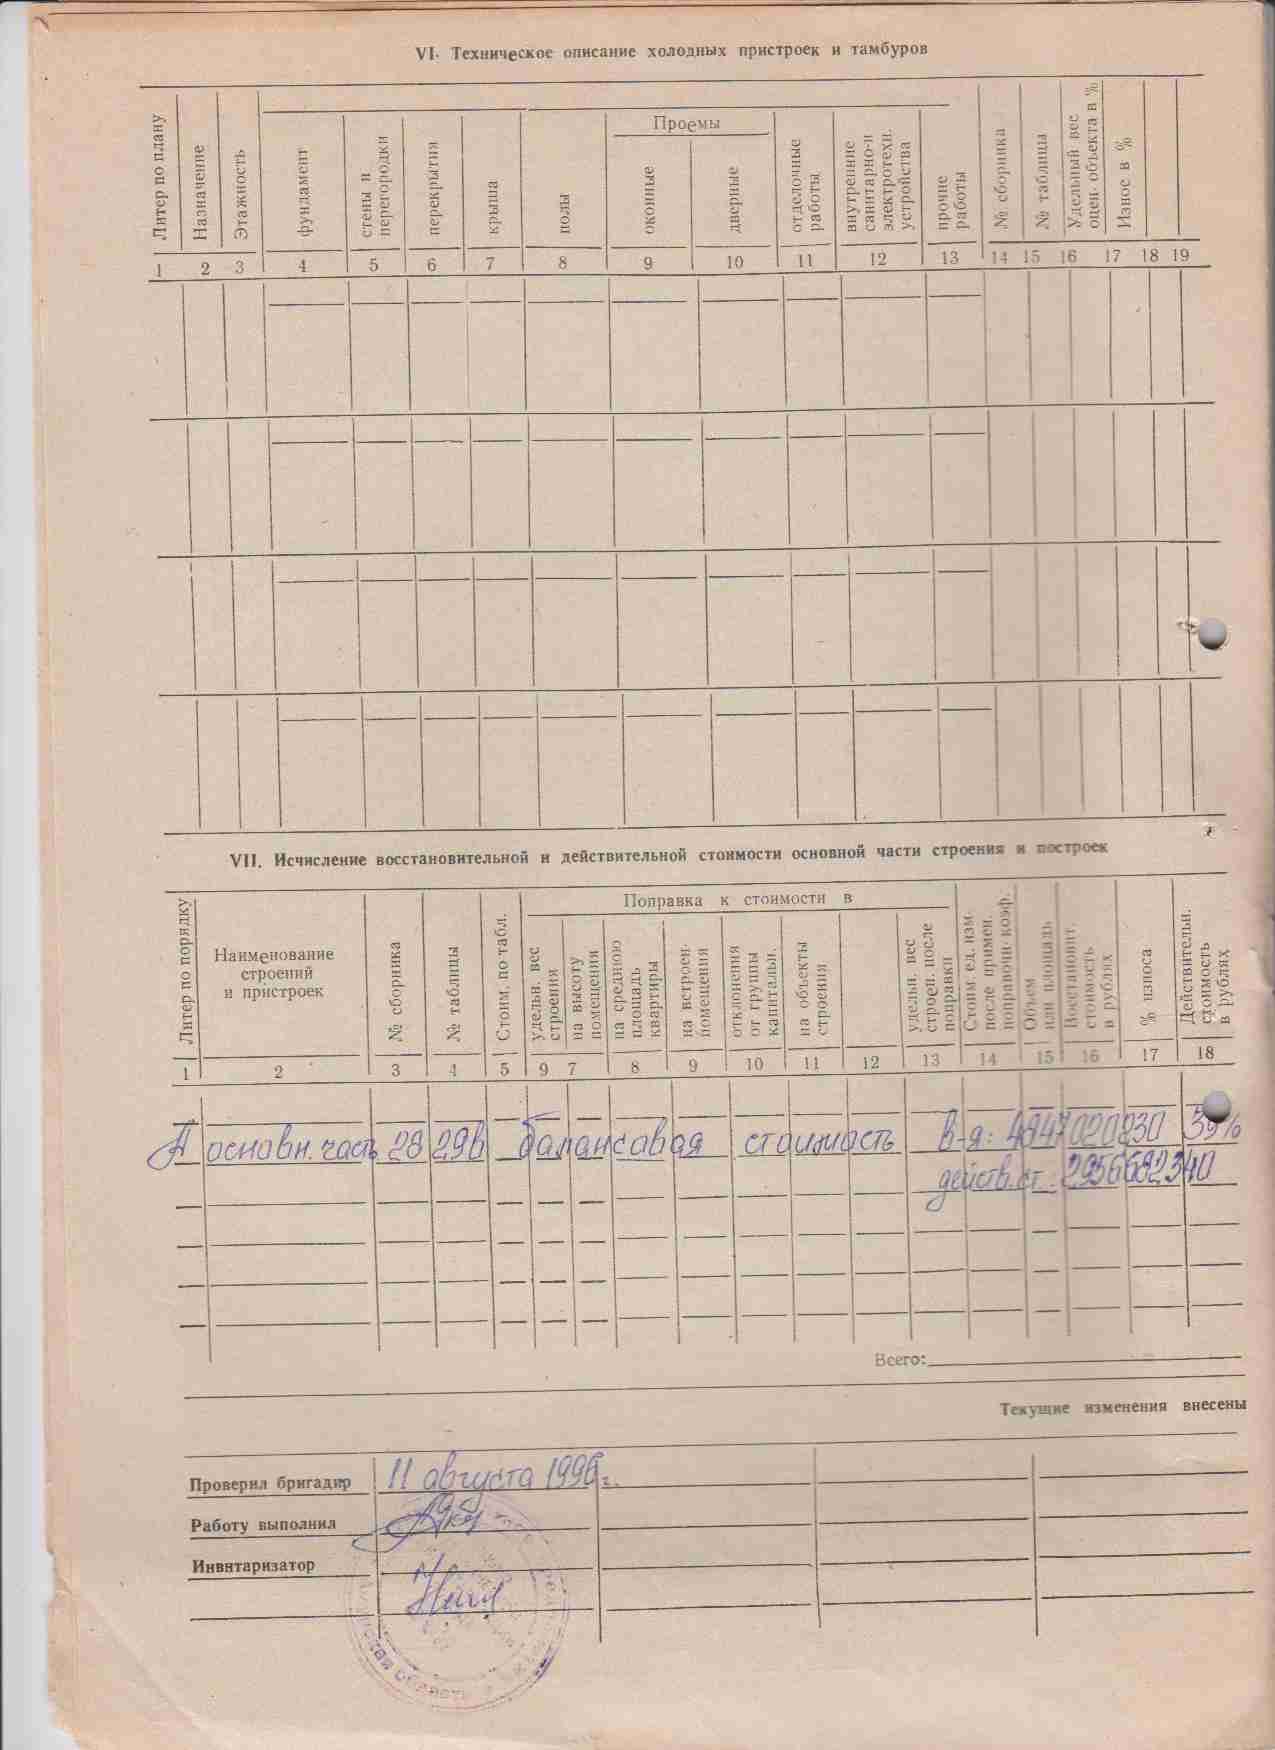 VI. Техническое описание холодных пристроек и тамбуров
Литер по плану
Назначение
Этажность
фундамент
стены и
перегородки
перекрытия
крыша
полы
Проемы
оконные
дверные
отделочные
работы
внутренние
санитарно-и
электротехн.
устройства
прочие
работы
№ сборника
№ таблицы
Удельный вес
оцен. объекта в %
Износ в %
1 2 3 4 5 6 7 8 9 10 11 12 13 14 15 16 17 18 19
VII. Исчисление восстановительной и действительной стоимости основной части строения и построек
Литер по порядку
Наименование
строений
и пристроек
№ сборника
№ таблицы
Стоим. по табл.
Поправка к стоимости в
удельн. вес
строения
на высоту
помещения
на среднюю
площадь
квартиры
на встроен-
помещения
отклонения
от группы
капитальн.
на объекты
строения
удельн. вес
строен. после
поправки
Стоим. ед. изм-
после примен.
поправочн. коэф.
Объем
или площадь
Восстановит.
стоимость
в рублях
% износа
Действительн.
стоимость
в рублях
1 2 3 4 5 9 7 8 9 10 11 12 13 14 15 16 17 18
А основн. часть 28 29в балансовая стоимость в-я: 4847020230 39%
действ. ст.: 2956682340
Всего:
Текущие изменения внесены
Проверил бригадир 11 августа 1996 г.
Работу выполнил
Инвнтаризатор